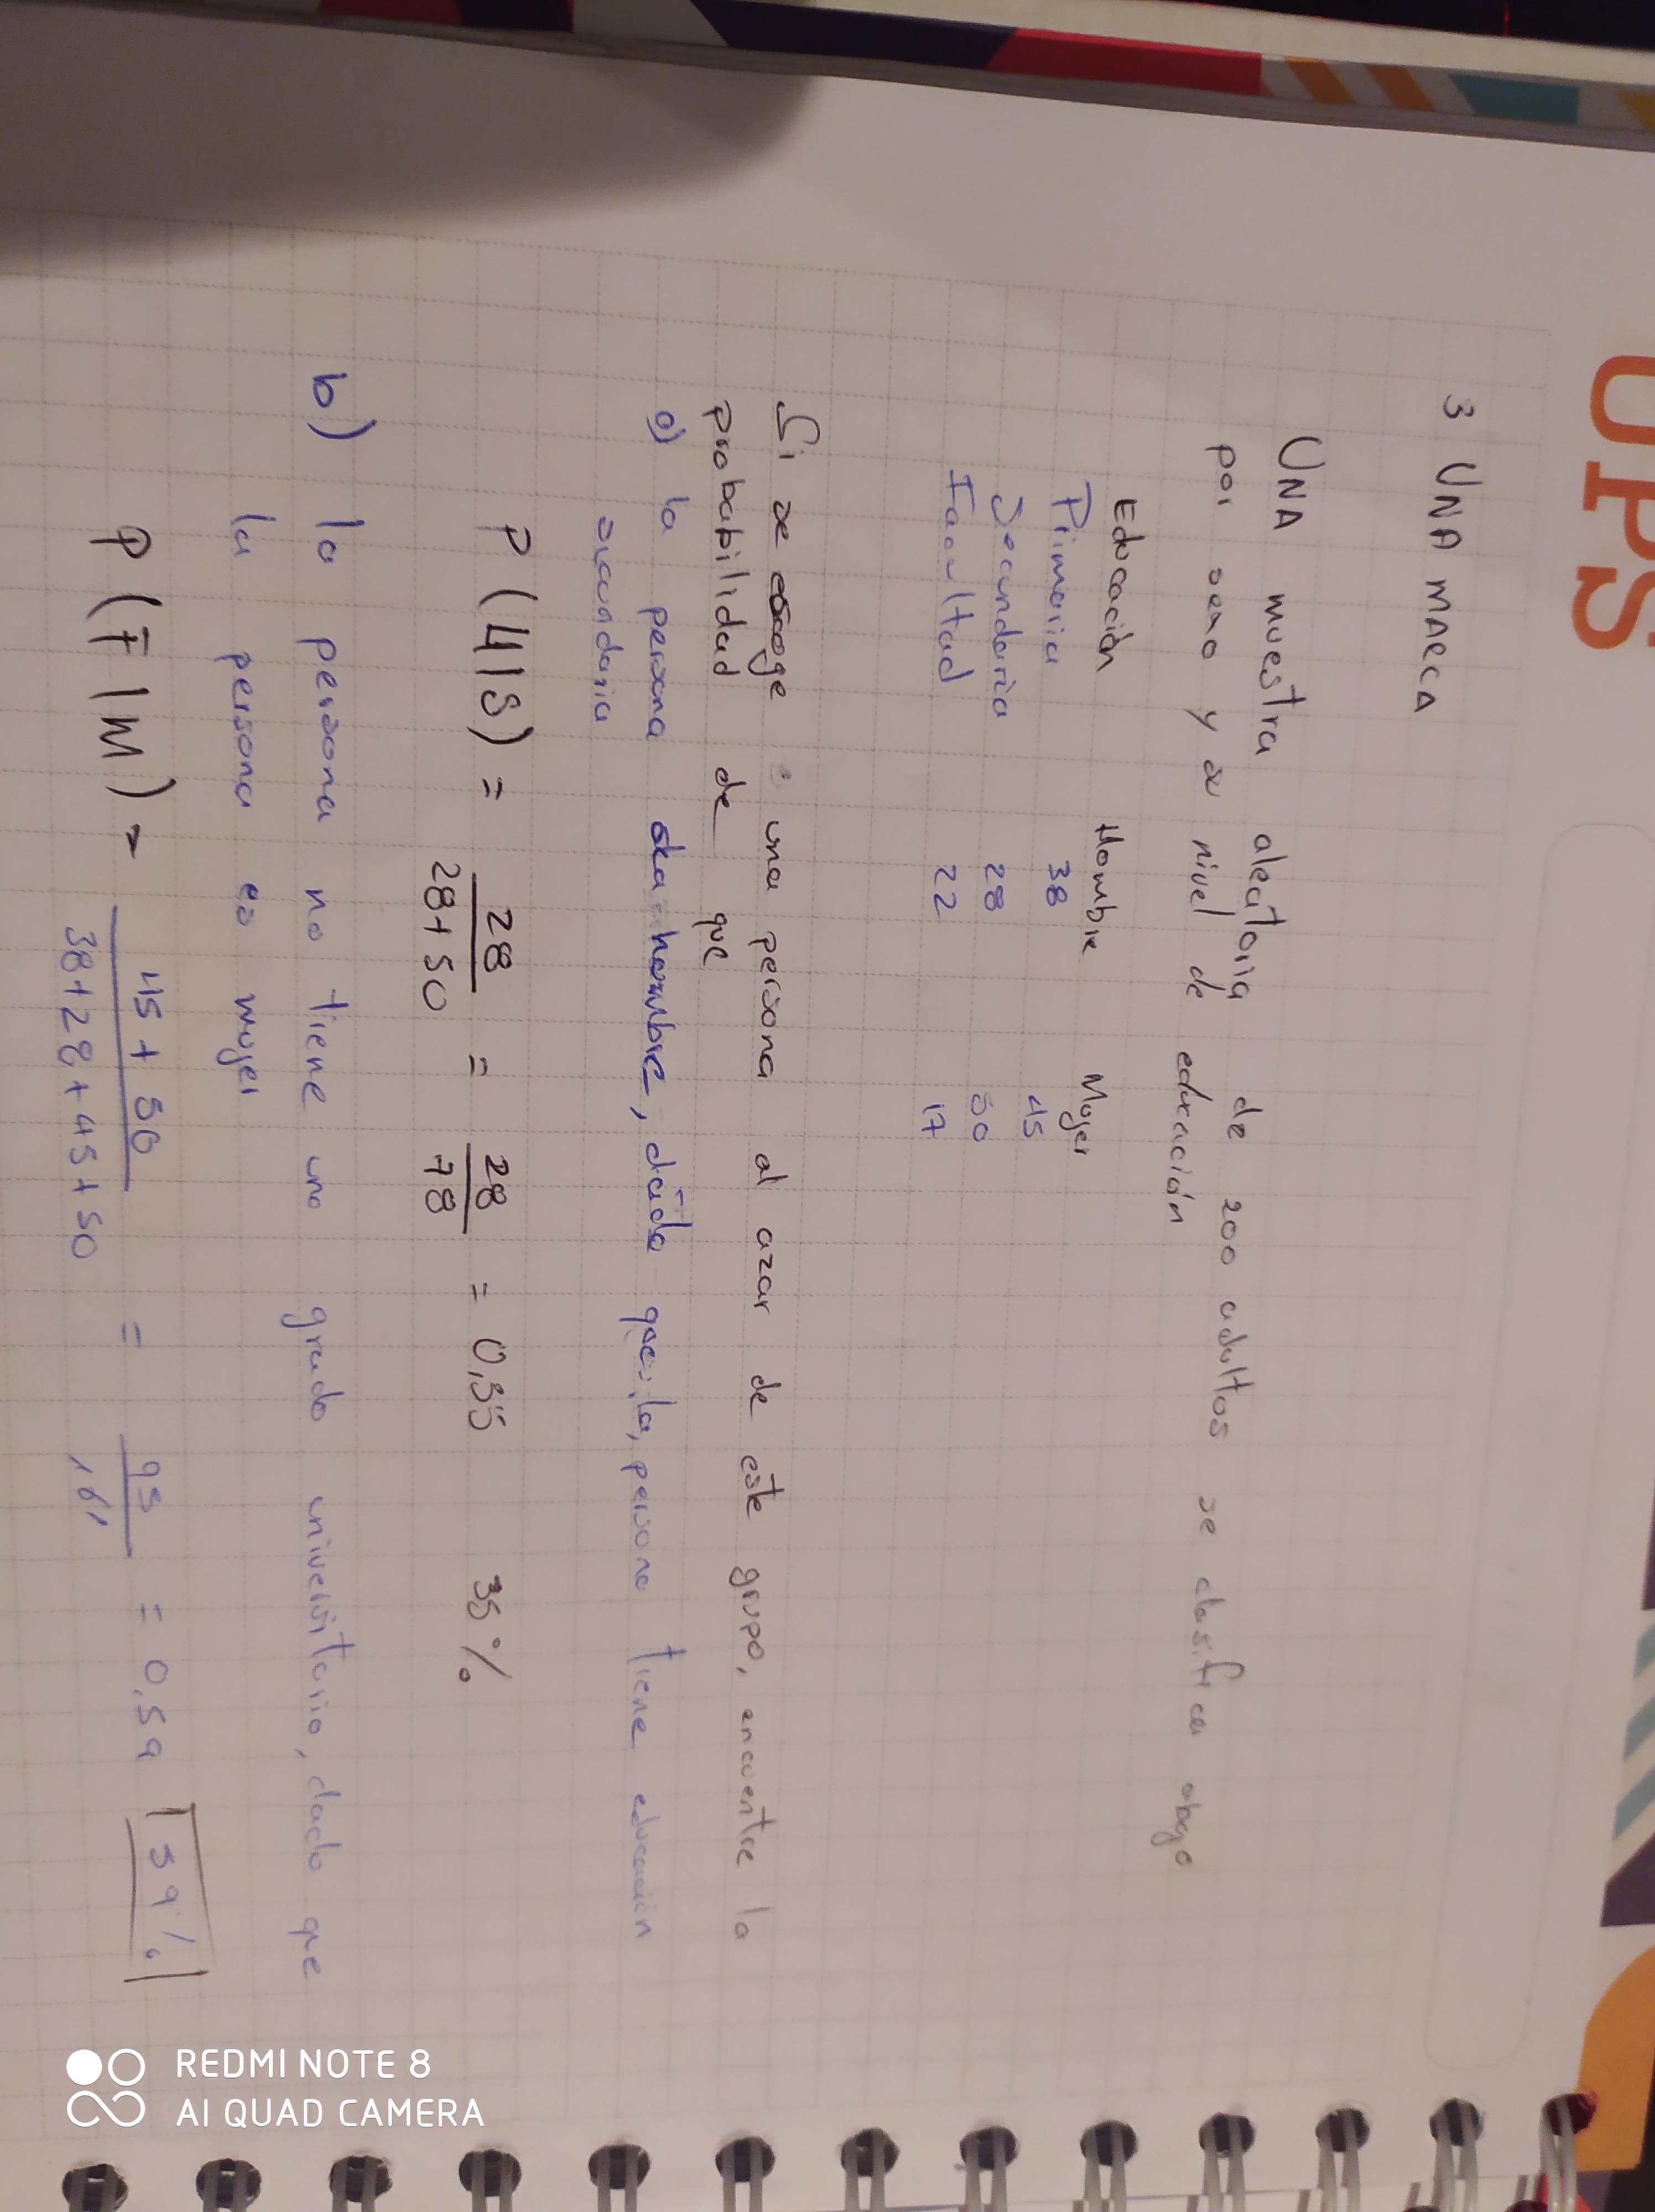 UPS
3 UNA MAECA
UNA muestra aleatoria de 200 adultos se clasifica abajo
por sexo y su nivel de educación
Educación Hombre Mujer
Primaria 38 45
Secundaria 28 50
Facultad 22 17
Si se escoge una persona al azar de este grupo, encuentre la
probabilidad de que
a) la persona sea hombre, dado que la persona tiene educación
secundaria
P(H|S) = 28/28+50 = 28/78 = 0,35 35%
b) la persona no tiene un grado universitario, dado que
la persona es mujer
P(F|M) = 45+50/38+28+45+50 = 95/161 = 0,59 59%
REDMI NOTE 8
AI QUAD CAMERA